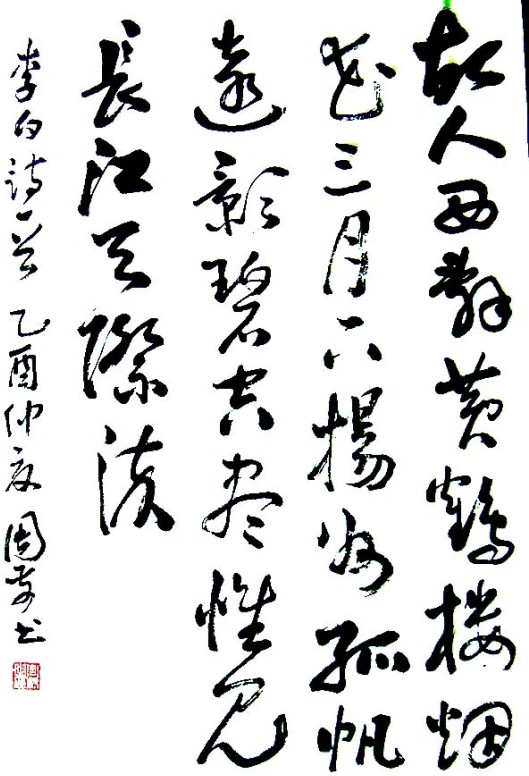 故人西辭黄鶴楼烟
花三月下揚州孤帆
遠影碧空尽惟見
長江天際流
李白詩一首 乙酉仲夏 书